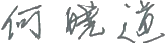 何晓道